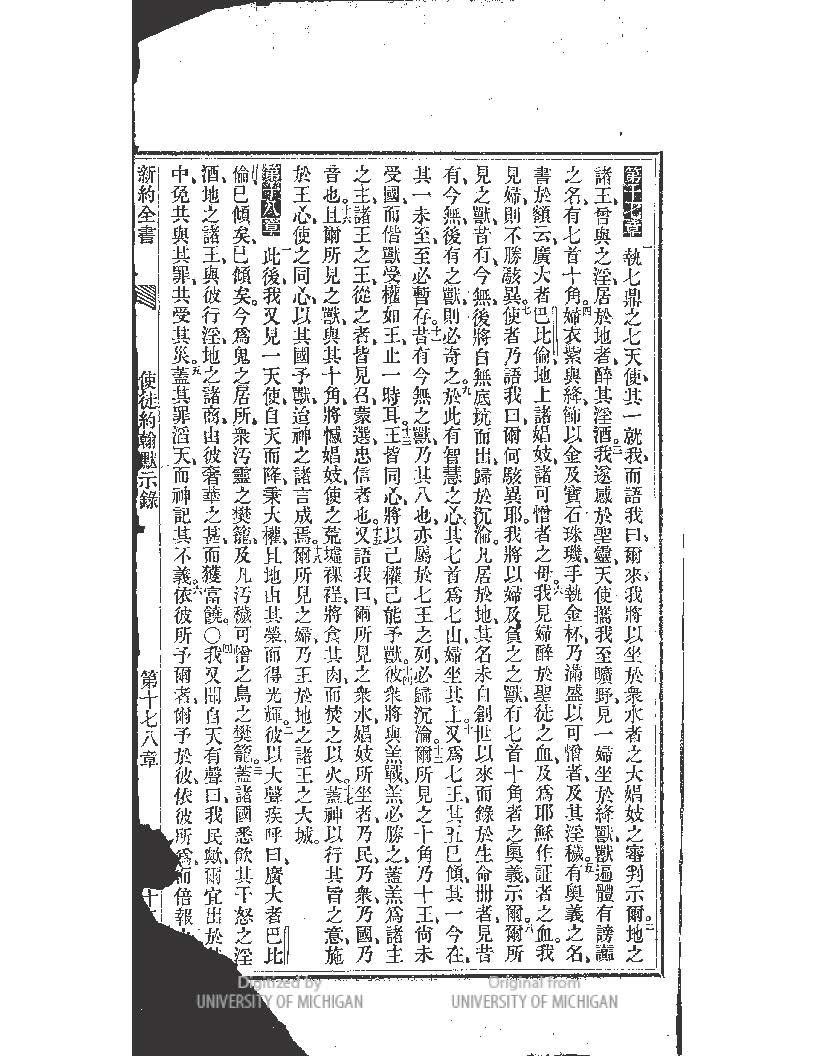 第十七章 一執七鼎之七天使、其一就我而語我曰、爾來、我將以坐於衆水者之大娼妓之審判示爾、二地之
諸王、嘗與之淫、居於地者、醉其淫酒、三我遂感於聖靈、天使攜我至曠野、見一婦坐於絳獸、獸遍體有謗讟
之名、有七首十角、四婦衣紫與絳、飾以金及寶石珠璣、手執金杯、乃滿盛以可憎者、及其淫穢、五有奧義之名、
書於額云、廣大者巴比倫、地上諸娼妓、諸可憎者之母、六我見婦醉於聖徒之血、及爲耶穌作証者之血、我
見婦、則不勝駭異、七使者乃語我曰、爾何駭異耶、我將以婦及負之之獸、有七首十角者之奧義示爾、八爾所
見之獸、昔有、今無、後將自無底坑而出、歸於沉淪、凡居於地、其名未自創世以來而錄於生命册者、見昔
有、今無、後有之獸、則必奇之、九於此有智慧之心、其七首爲七山、婦坐其上、十又爲七王、其五已傾、其一今在、
其一未至、至必暫存、十一昔有今無之獸、乃其八也、亦屬於七王之列、必歸沉淪、十二爾所見之十角、乃十王、尙未
受國、而偕獸受權如王、止一時耳、十三王皆同心、將以己權己能予獸、十四彼衆將與羔戰、羔必勝之、蓋羔爲諸主
之主、諸王之王、從之者、皆見召、蒙選、忠信者也、十五又語我曰、爾所見之衆水、娼妓所坐者、乃民、乃衆、乃國、乃
音也、十六且爾所見之獸、與其十角、將憾娼妓、使之荒墟裸裎、將食其肉、而焚之以火、十七蓋神以行其旨之意、施
於王心、使之同心、以其國予獸、迨神之諸言成焉、十八爾所見之婦、乃王於地之諸王之大城。
第十八章 一此後、我又見一天使、自天而降、秉大權、且地由其榮而得光輝、二彼以大聲疾呼曰、廣大者巴比
倫已傾矣、已傾矣、今爲鬼之居所、衆汚靈之樊籠、及凡汚穢可憎之鳥之樊籠、三蓋諸國悉飲其干怒之淫
酒、地之諸王、與彼行淫、地之諸商、由彼奢華之甚而獲富饒。〇四我又聞自天有聲曰、我民歟、爾宜出於
中、免共與其罪、共受其災、五蓋其罪滔天、而神記其不義、六依彼所予爾者、爾予於彼、依彼所爲、而倍報
新約全書 使徒約翰默示錄 第十七八章 十
Digitized by
UNIVERSITY OF MICHIGAN
Original from
UNIVERSITY OF MICHIGAN